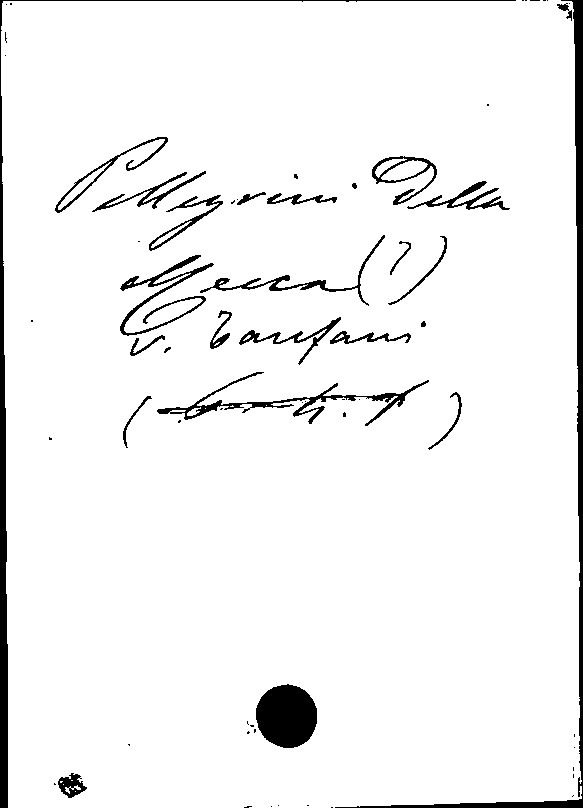 Pellegrini Della
Mecca (?)
v. Tanfani
( )